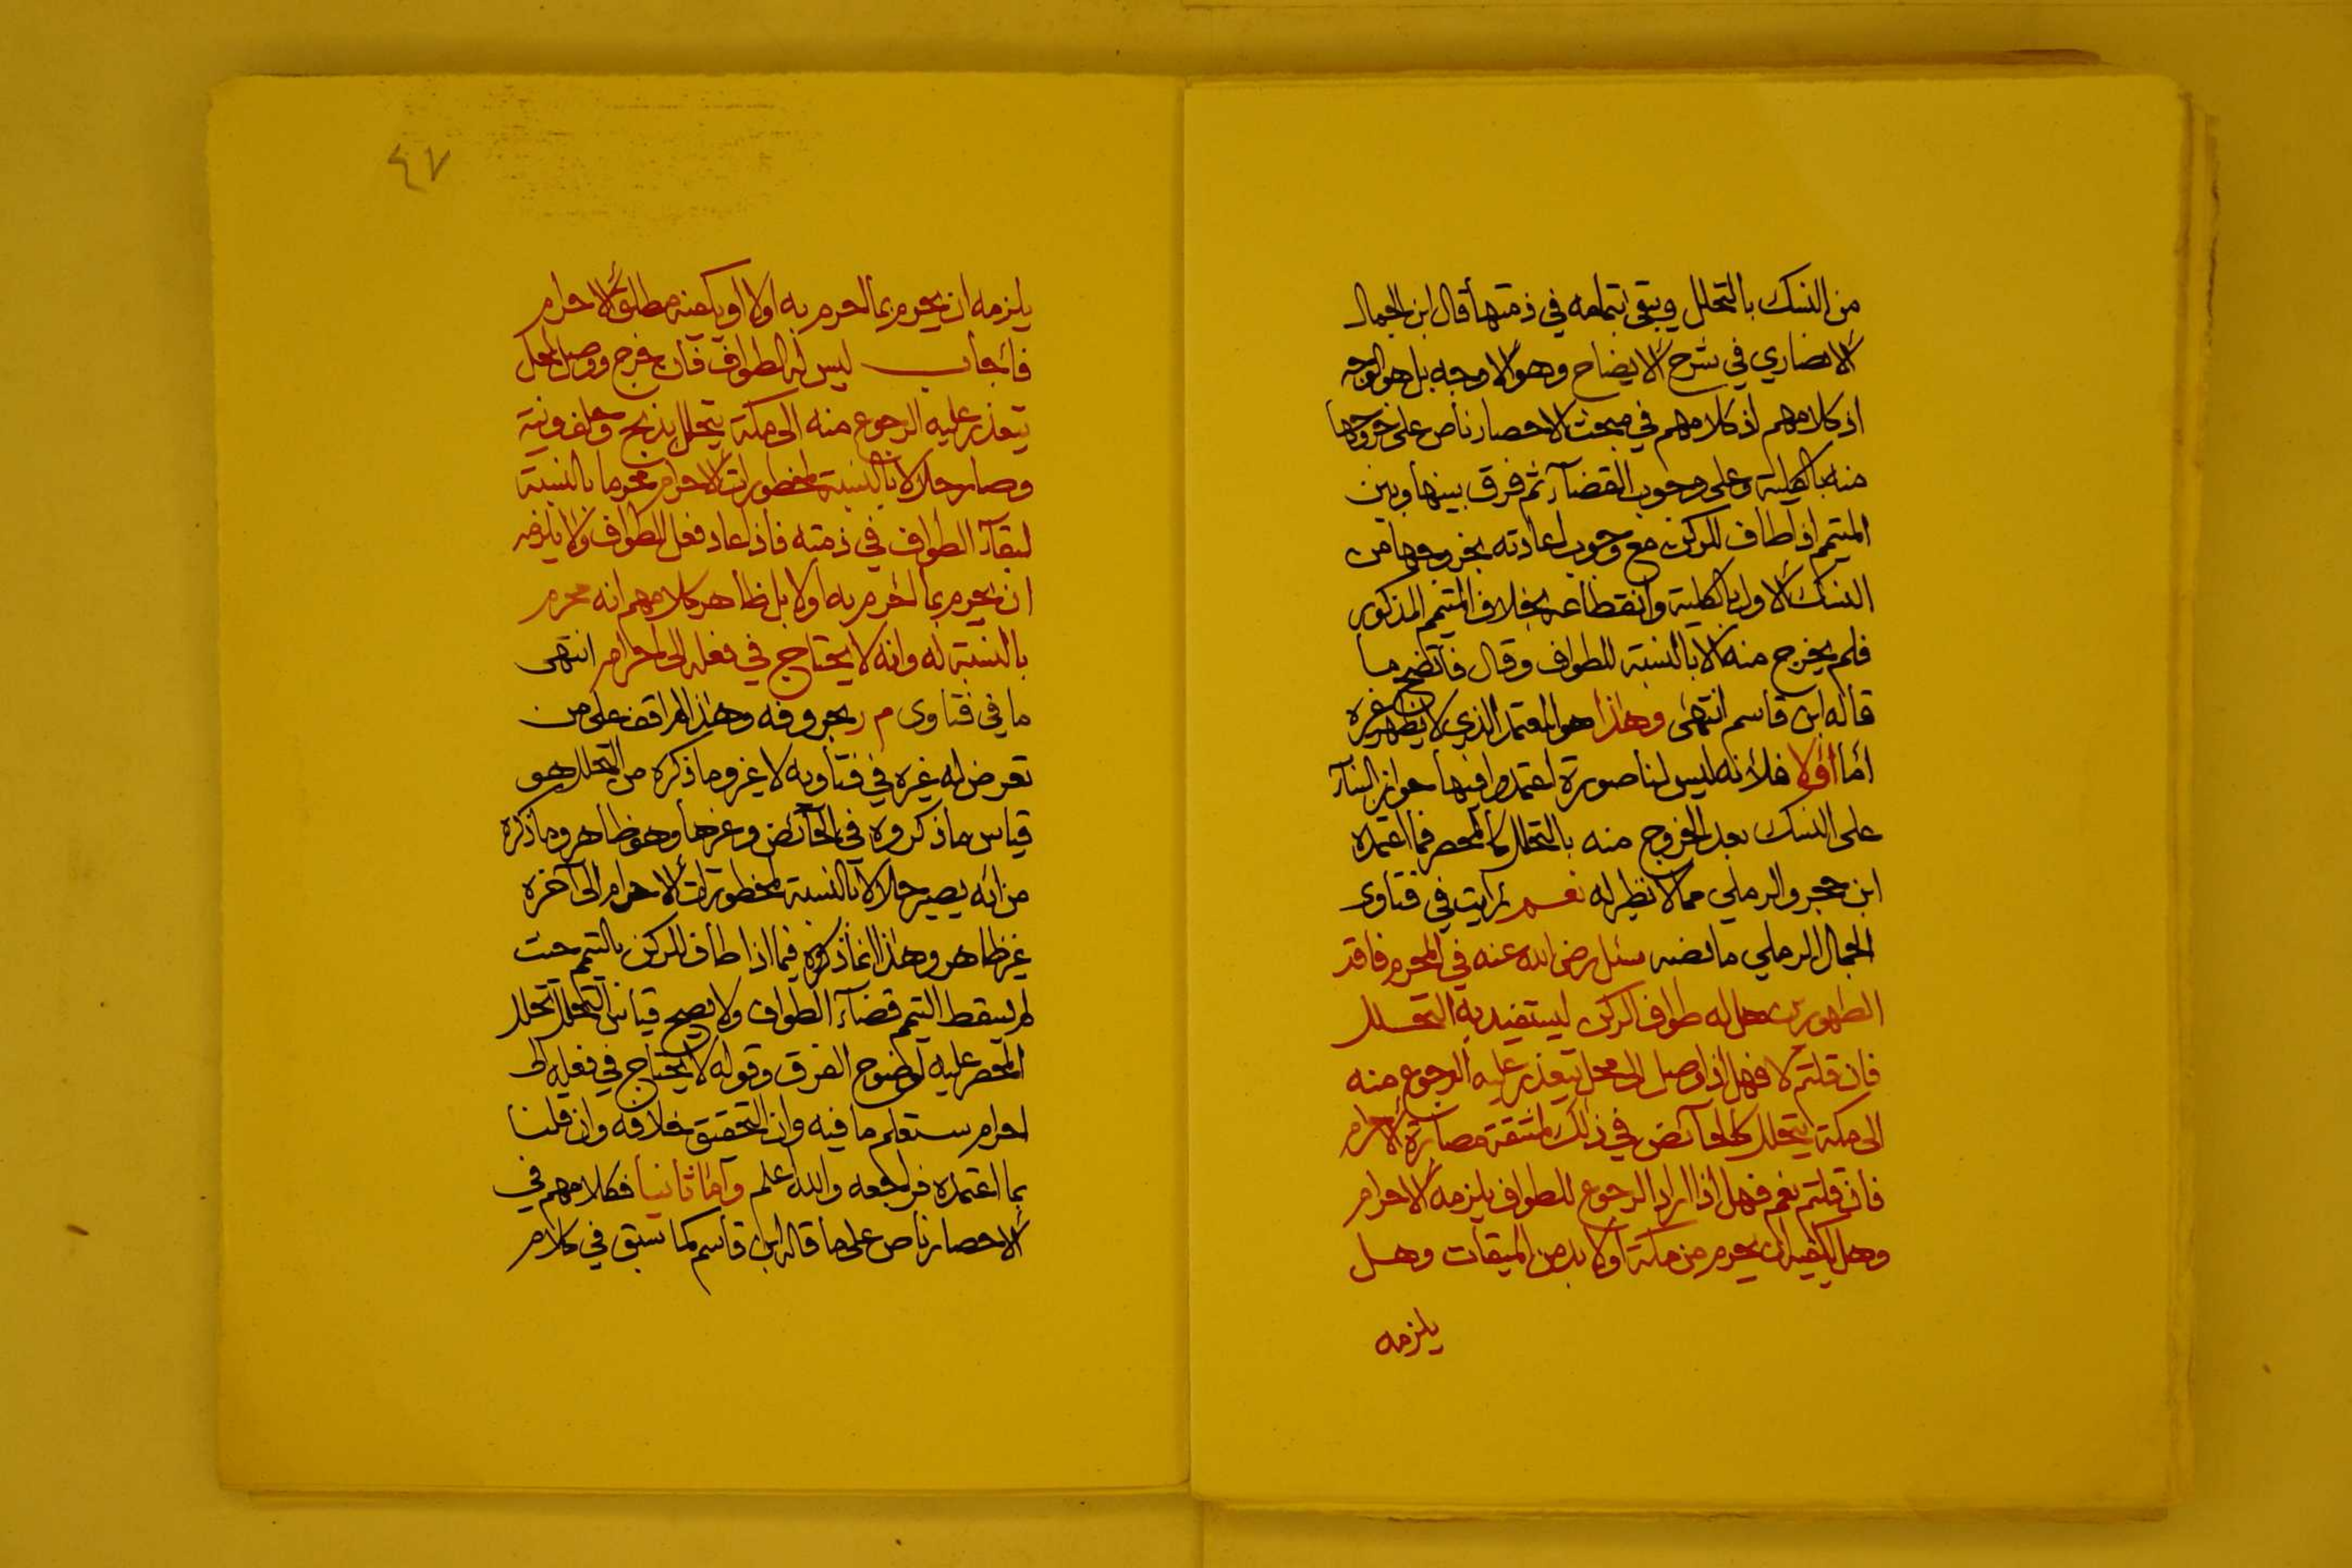 من النسك بالتحلل ويبقى إتمامه في ذمتها قال ابن الجمال
الانصاري في شرح الايضاح وهو الاوجه بل هو الوجه
اذ كلامهم اذ كلامهم في مبحث الاحصار ناص على خروجها
منه بالكلية وعلى وجوب القضآء ثم فرق بينها وبين
المتيمم اذا طاف للركن مع وجوب اعادته بخروجها من
النسك الاول بالكلية وانقطاعه بخلاف المتيمم المذكور
فلم يخرج منه الا بالنسبة للطواف وقال فاتضح ما
قاله ابن قاسم انتهى وهذا هو المعتمد الذي لا يظهر غيره
أما أولا فلانه ليس لنا صورة اعتمدوا فيها جواز البنآء
على النسك بعد الخروج منه بالتحلل كالمحصر فما اعتمده
ابن حجر والرملي مما لا نظير له نعم رأيت في فتاوى
الجمال الرملي ما نصه سئل رضي الله عنه في المحرم فاقد
الطهورين هل له طواف الركن ليستفيد به التحلل
فان قلتم لا فهل اذا وصل الى محل يتعذر عليه الرجوع منه
الى مكة يتحلل كالحائض في ذلك لمشقة مصابرة الاحرام
فان قلتم نعم فهل اذا اراد الرجوع للطواف يلزمه الاحرام
وهل يكفيه ان يحرم من مكة أولا بد من الميقات وهل
يلزمه
٤٧
يلزمه ان يحرم بما احرم به اولا او يكفيه مطلق الاحرام
فأجاب ليس له الطواف فان خرج ووصل لمحل
يتعذر عليه الرجوع منه الى مكة يتحلل بذبح وحلق ونية
وصار حلالا بالنسبة لمحظورات الاحرام محرما بالنسبة
لبقآء الطواف في ذمته فاذا عاد فعل الطواف ولا يلزمه
ان يحرم بما احرم به اولا بل ظاهر كلامهم انه محرم
بالنسبة له وانه لا يحتاج في فعله الى احرام انتهى
ما في فتاوى م ر بحروفه وهذا لم اقف على من
تعرض له غيره في فتاويه لا غير وما ذكره من التحلل هو
قياس ما ذكروه في الحائض وغيرها وهو ظاهر وما ذكره
من انه يصير حلالا بالنسبة لمحظورات الاحرام الى آخره
غير ظاهر وهذا انما ذكروه فيما اذا طاف للركن بالتيمم حيث
لم يسقط التيمم قضآء الطواف ولا يصح قياس التحلل تحلل
المحصر عليه لوضوح الفرق وقوله لا يحتاج في فعله الى
احرام ستعلم ما فيه وان التحقيق خلافه وان قلنا
بما اعتمده فراجعه والله اعلم وأما ثانيا فكلامهم في
الاحصار ناص على ما قاله ابن قاسم كما سبق في كلام